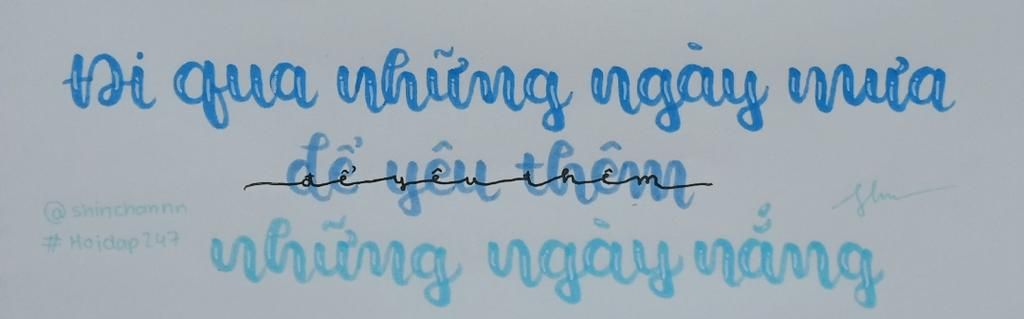 Đi qua những ngày mưa
để yêu thêm
để yêu thêm
@shinchannn
#Hoidap247
những ngày nắng